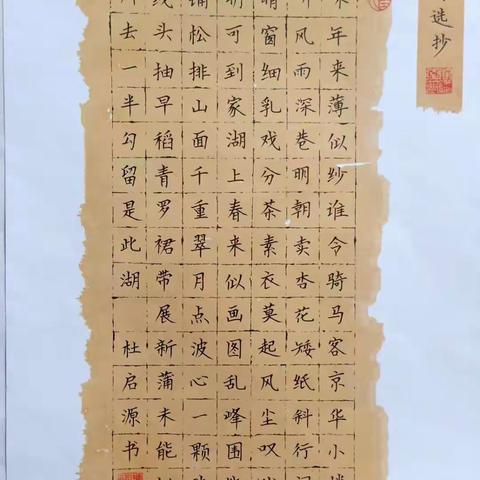 选抄
年来薄似纱谁令骑马客京华小
风雨深巷明朝卖杏花矮纸斜行
晴窗细乳戏分茶素衣莫起风尘叹
明可到家湖上春来似画图乱峰围
铺松排山面千重翠月点波心一颗
线头抽早稻青罗裙带展新蒲未能
去一半勾留是此湖 杜启源书